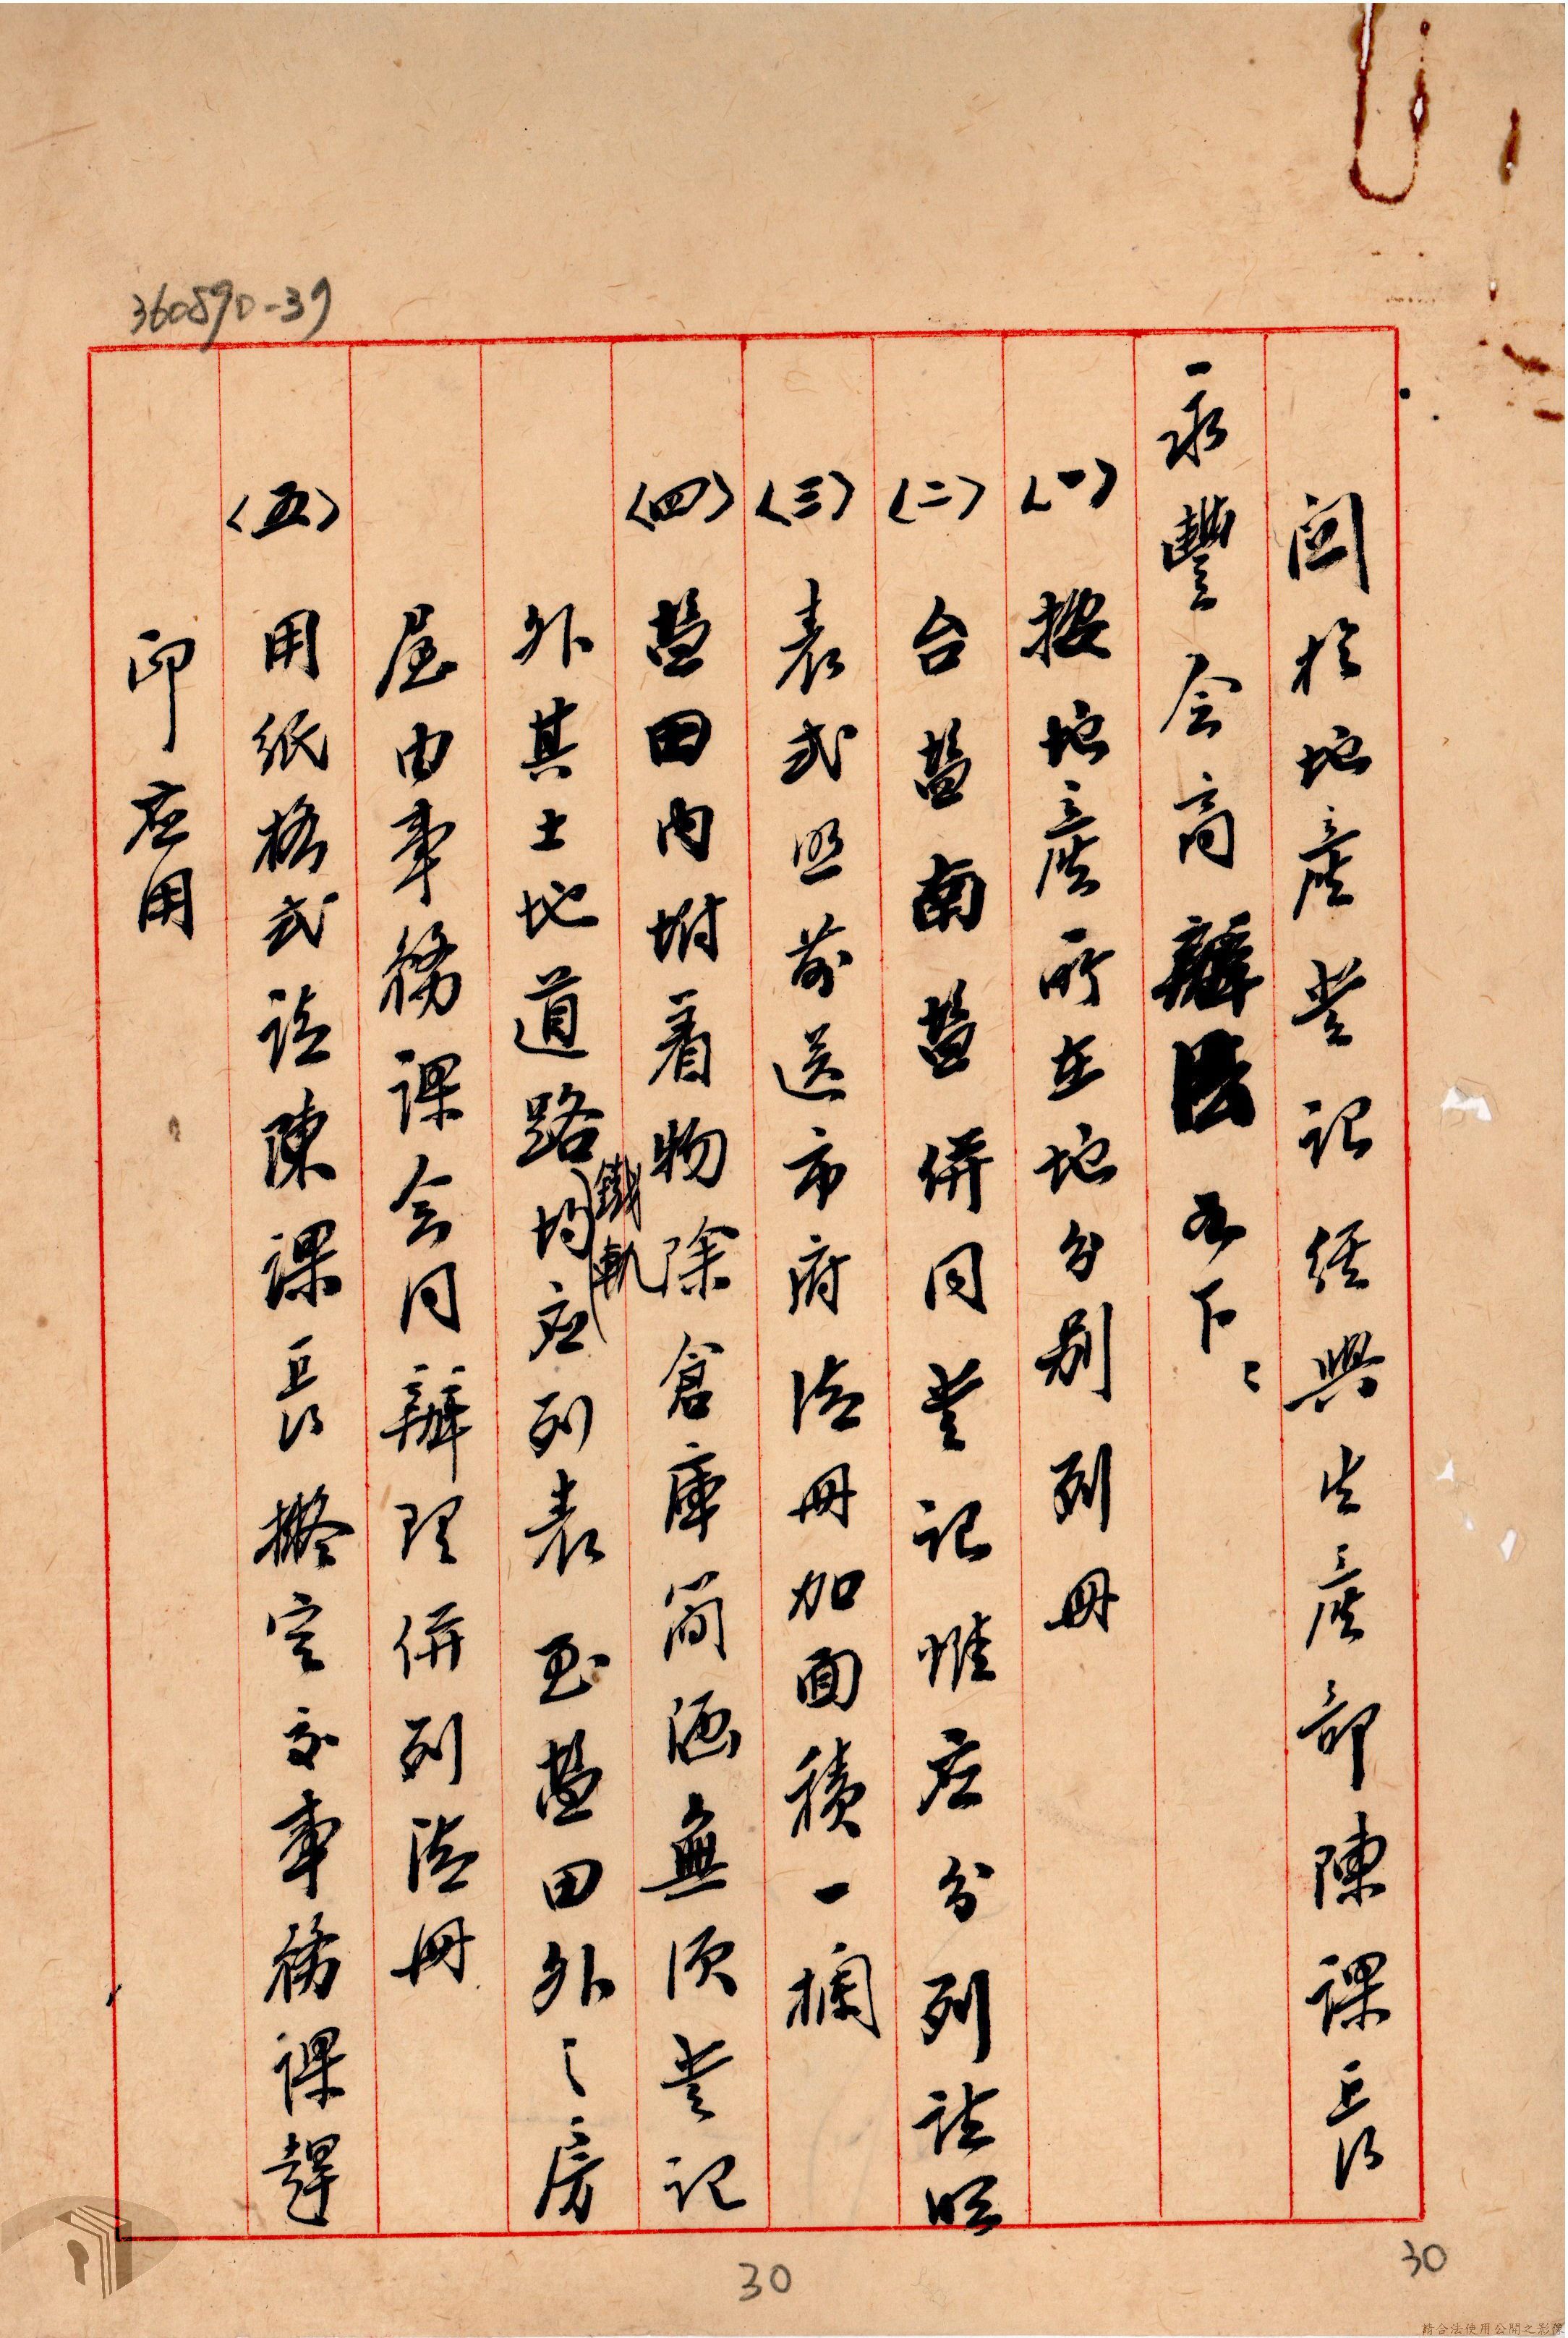 360590-39
關於地產登記經與生產部陳課長
永豐会商辦法如下：
(一) 按地產所在地分別列冊
(二) 台鹽南鹽併同登記惟应分列註明
(三) 表式照前送市府清冊加面積一欄
(四) 鹽田內附着物除倉庫簡池無須登記
外其土地道路(鐵軌)均应列表 至鹽田外之房
屋由事務課会同辦理併列清冊
(五) 用紙格式請陳課長擬定交事務課趕
印应用
30
30
請合法使用公開之影像